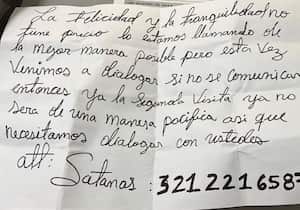 La Felicidad y la tranquilidad no
tiene precio lo estamos llamando de
la mejor manera posible pero esta vez
Venimos a dialogar si no se comunican
entonces ya la Segunda Visita ya no
sera de una manera pacifica asi que
necesitamos dialogar con ustedes
att:
Satanas : 321 221 6587